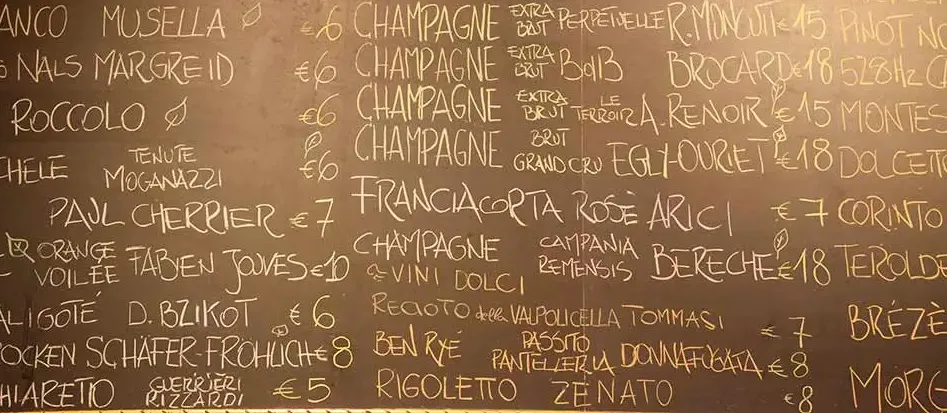 ANCO MUSELLA €6
NALS MARGREID €6
ROCCOLO €6
CHELE TENUTE MOGANAZZI €6
PAUL CHERRIER €7
ORANGE VOILÉE FABIEN JOUVES €10
ALIGOTÉ D. BZIKOT €6
OCKEN SCHÄFER-FROHLICH €8
HIARETTO GUERRIERI RIZZARDI €5
CHAMPAGNE EXTRA BRUT PERPETUELLE R. MONCUIT €15
CHAMPAGNE EXTRA BRUT BOIB BROCARD €18
CHAMPAGNE EXTRA BRUT LE TERROIR A. RENOIR €15
CHAMPAGNE BRUT GRAND CRU EGLY-OURIET €18
FRANCIACORTA ROSÈ ARICI €7
CHAMPAGNE CAMPANIA REMENSIS BERECHE €18
VINI DOLCI
RECIOTO della VALPOLICELLA TOMMASI €7
BEN RYÉ PASSITO PANTELLERIA DONNAFUGATA €8
RIGOLETTO ZENATO €8
PINOT NO
528Hz C
MONTES
DOLCETT
CORINTO
TEROLDE
BRÉZÈ
MORG